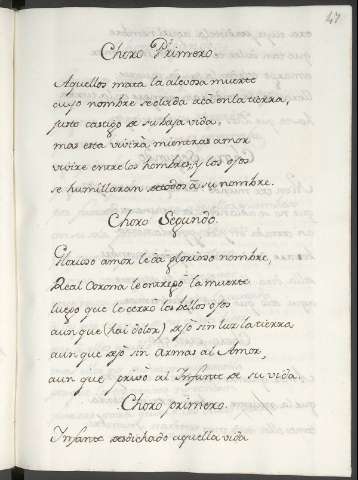 47
Choro Primero.
Aquellos mata la alevosa muerte
cuyo nombre se olvida acà en la tierra,
justo castigo de su baja vida,
mas esta vivirà mientras amor
viviere entre los hombres, y los ojos
se humillaràn de todos à su nombre.
Choro Segundo.
Glorioso amor le dà glorioso nombre,
Real Corona le entregò la muerte
luego que le cerrò los bellos ojos
aunque (hai dolor) dejò sin luz la tierra
aunque dejò sin armas al Amor,
aunque privò al Infante de su vida.
Choro primero.
Infante desdichado aquella vida